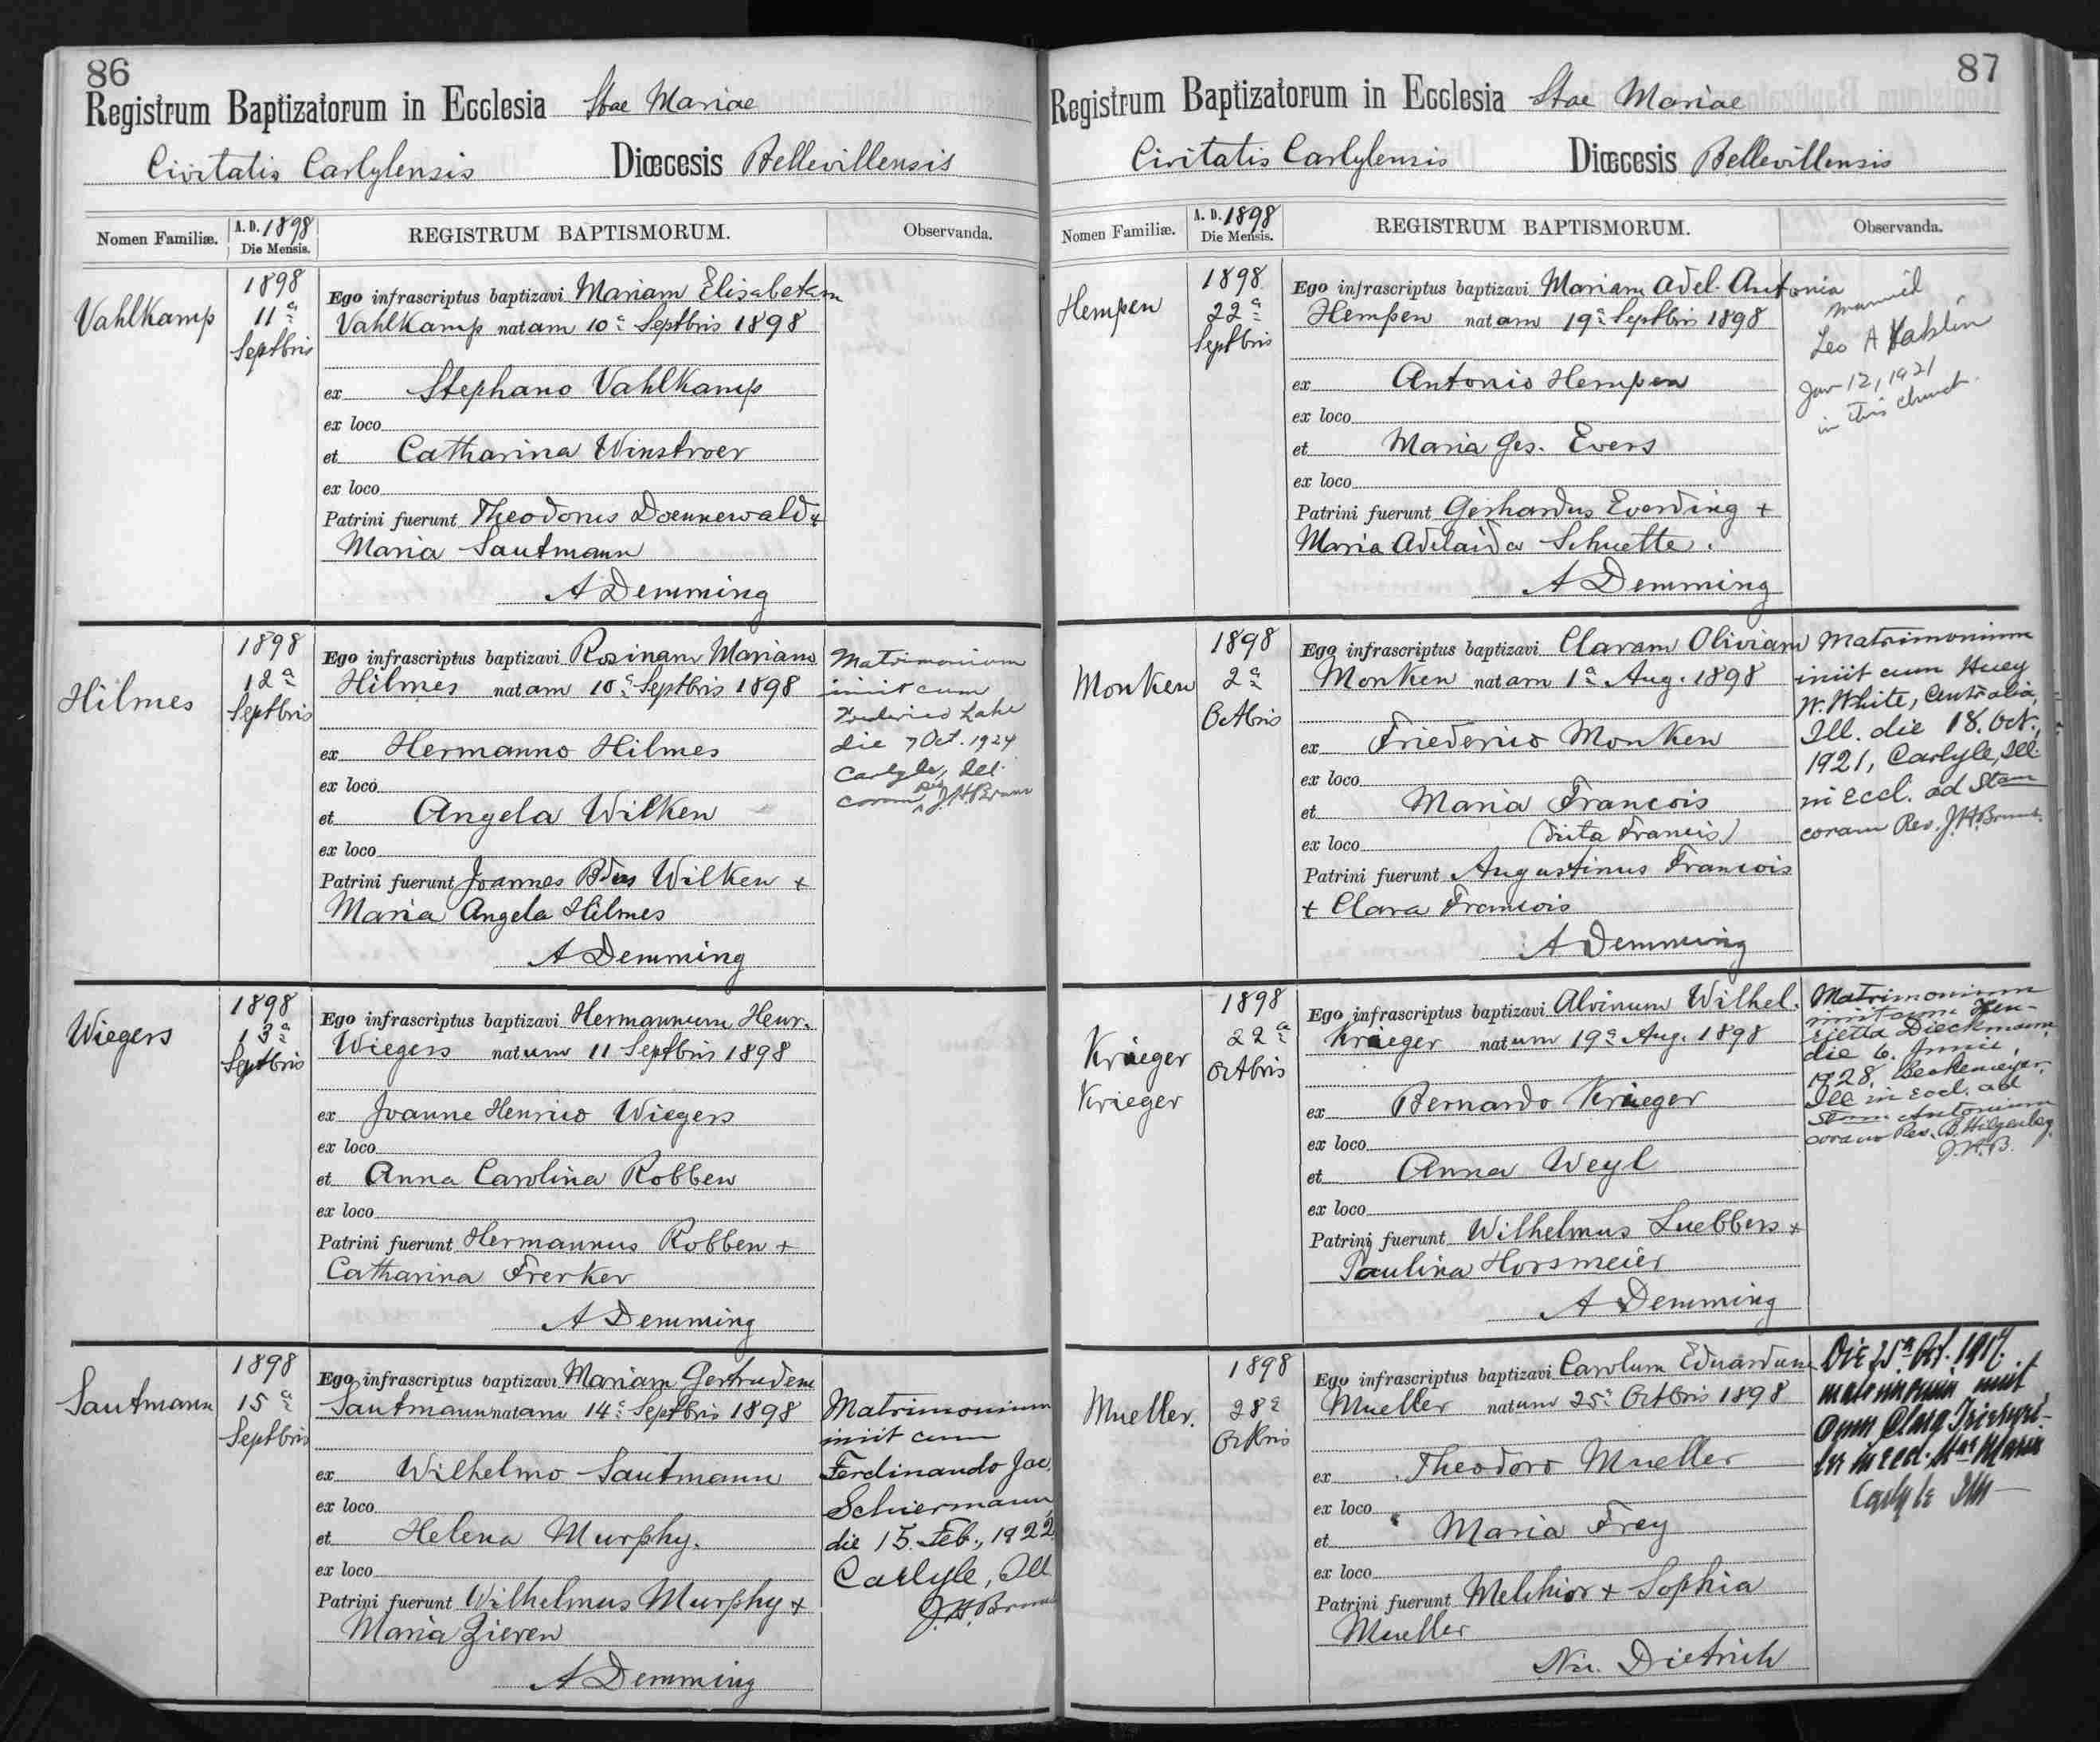 86
Registrum Baptizatorum in Ecclesia Stae Mariae
Civitatis Carlylensis Diœcesis Bellevillensis
Nomen Familiæ. A. D. 1898 Die Mensis. REGISTRUM BAPTISMORUM. Observanda.
Vahlkamp
1898
11ª
Septbris
Ego infrascriptus baptizavi Mariam Elisabetam
Vahlkamp natam 10ª Septbris 1898
ex Stephano Vahlkamp
ex loco
et Catharina Winstroer
ex loco
Patrini fuerunt Theodorus Doennewald +
Maria Sautmann
A Demming
Hilmes
1898
12ª
Septbris
Ego infrascriptus baptizavi Rosinam Mariam
Hilmes natam 10ª Septbris 1898
ex Hermanno Hilmes
ex loco
et Angela Wilken
ex loco
Patrini fuerunt Joannes Bdus Wilken +
Maria Angela Hilmes
A Demming
Matrimonium
iniit cum
Frederico Lake
die 7 Oct. 1924
Carlyle, Ill.
coram Rev J.H. Bruns
Wiegers
1898
13ª
Septbris
Ego infrascriptus baptizavi Hermannum Henr.
Wiegers natum 11 Septbris 1898
ex Joanne Henrico Wiegers
ex loco
et Anna Carolina Robben
ex loco
Patrini fuerunt Hermannus Robben +
Catharina Frerker
A Demming
Sautmann
1898
15ª
Septbris
Ego infrascriptus baptizavi Mariam Gertrudem
Sautmann natam 14ª Septbris 1898
ex Wilhelmo Sautmann
ex loco
et Helena Murphy.
ex loco
Patrini fuerunt Wilhelmus Murphy +
Maria Zieren
A Demming
Matrimonium
iniit cum
Ferdinando Jac.
Schiermann
die 15. Feb., 1922
Carlyle, Ill
J.H. Bruns
87
Registrum Baptizatorum in Ecclesia Stae Mariae
Civitatis Carlylensis Diœcesis Bellevillensis
Nomen Familiæ. A. D. 1898 Die Mensis. REGISTRUM BAPTISMORUM. Observanda.
Hempen
1898
22ª
Septbris
Ego infrascriptus baptizavi Mariam Adel. Antonia
Hempen natam 19ª Septbris 1898
ex Antonio Hempen
ex loco
et Maria Ges. Evers
ex loco
Patrini fuerunt Gerhardus Everding +
Maria Adelaida Schuette.
A Demming
married
Leo A
Jan 12, 1921
in this church.
Monken
1898
2ª
Octbris
Ego infrascriptus baptizavi Claram Oliviam
Monken natam 1ª Aug. 1898
ex Friederico Monken
ex loco
et Maria Francois
ex loco (dicta Francis)
Patrini fuerunt Augustinus Francois
+ Clara Francois
A Demming
Matrimonium
iniit cum Huey
W. White, Centralia,
Ill. die 18. Oct.,
1921, Carlyle, Ill.
in eccl. ad Stam
coram Rev. J.H. Bruns.
Krieger
Krieger
1898
22ª
Octbris
Ego infrascriptus baptizavi Alvinum Wilhel.
Krieger natum 19ª Aug. 1898
ex Bernardo Krieger
ex loco
et Anna Weyl
ex loco
Patrini fuerunt Wilhelmus Luebbers +
Paulina Horsmeier
A Demming
Matrimonium
iniit cum Hen-
rietta Dieckmann,
die 6. Junii,
1928, Beckemeyer,
Ill in eccl. ad
Stum. Antonium
coram Rev. B. Hilgenberg.
J.H.B.
Mueller.
1898
28ª
Octbris
Ego infrascriptus baptizavi Carolum Eduardum
Mueller natum 25ª Octbris 1898
ex Theodoro Mueller
ex loco
et Maria Frey
ex loco
Patrini fuerunt Melchior + Sophia
Mueller
Nic. Dietrich
Die 25ª Oct. 1917.
matrimonium iniit
cum Clara
in eccl. Stae Mariae
Carlyle Ills